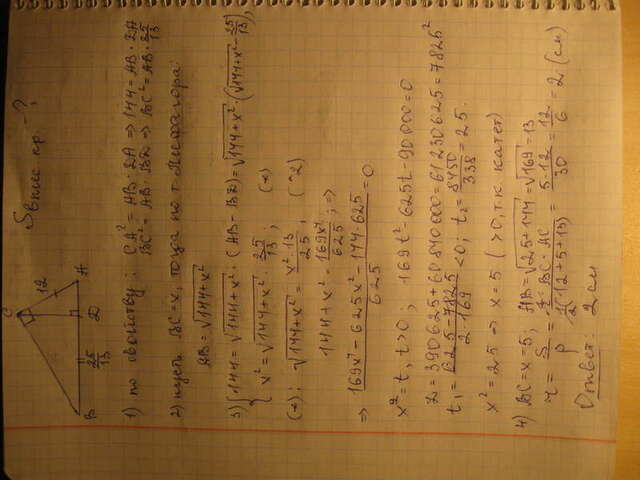 Sвпис. кр. - ?
C
12
B
D
A
25/13
1) по свойству: CA² = AB · DA ⇒ 144 = AB · DA
BC² = AB · BD ⇒ BC² = AB · 25/13
2) пусть BC = x, тогда по т. Пифагора:
AB = √(144+x²)
3) { 144 = √(144+x²) · (AB - BD) = √(144+x²) · (√(144+x²) - 25/13),
x² = √(144+x²) · 25/13, (*)
(*): √(144+x²) = x²·13/25; (^2)
144 + x² = 169x⁴/625; ⇒
⇒ (169x⁴ - 625x² - 144·625)/625 = 0
x² = t, t>0; 169t² - 625t - 90 000 = 0
D = 390625 + 60 840 000 = 61 230 625 = 7825²
t₁ = (625 - 7825)/(2·169) < 0; t₂ = 8450/338 = 25.
x² = 25 ⇒ x = 5 (>0, т.к. катет)
4) BC = x = 5; AB = √(25+144) = √169 = 13
r = S/p = (½ · BC · AC)/(½(12+5+13)) = 5·12/30 = 12/6 = 2 (см)
Ответ: 2 см